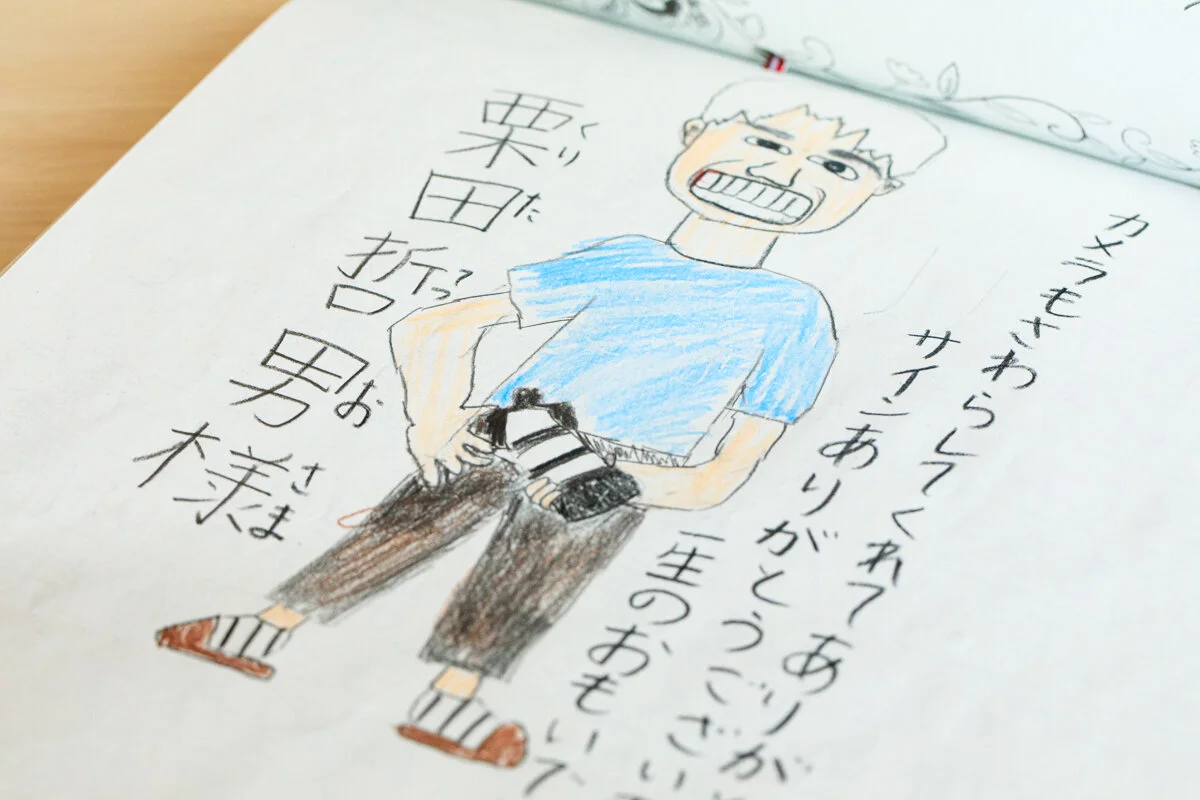 カメラもさわらしてくれてありが
サインありがとうござい
一生のおもい
くりたてつおさま
栗田哲男様